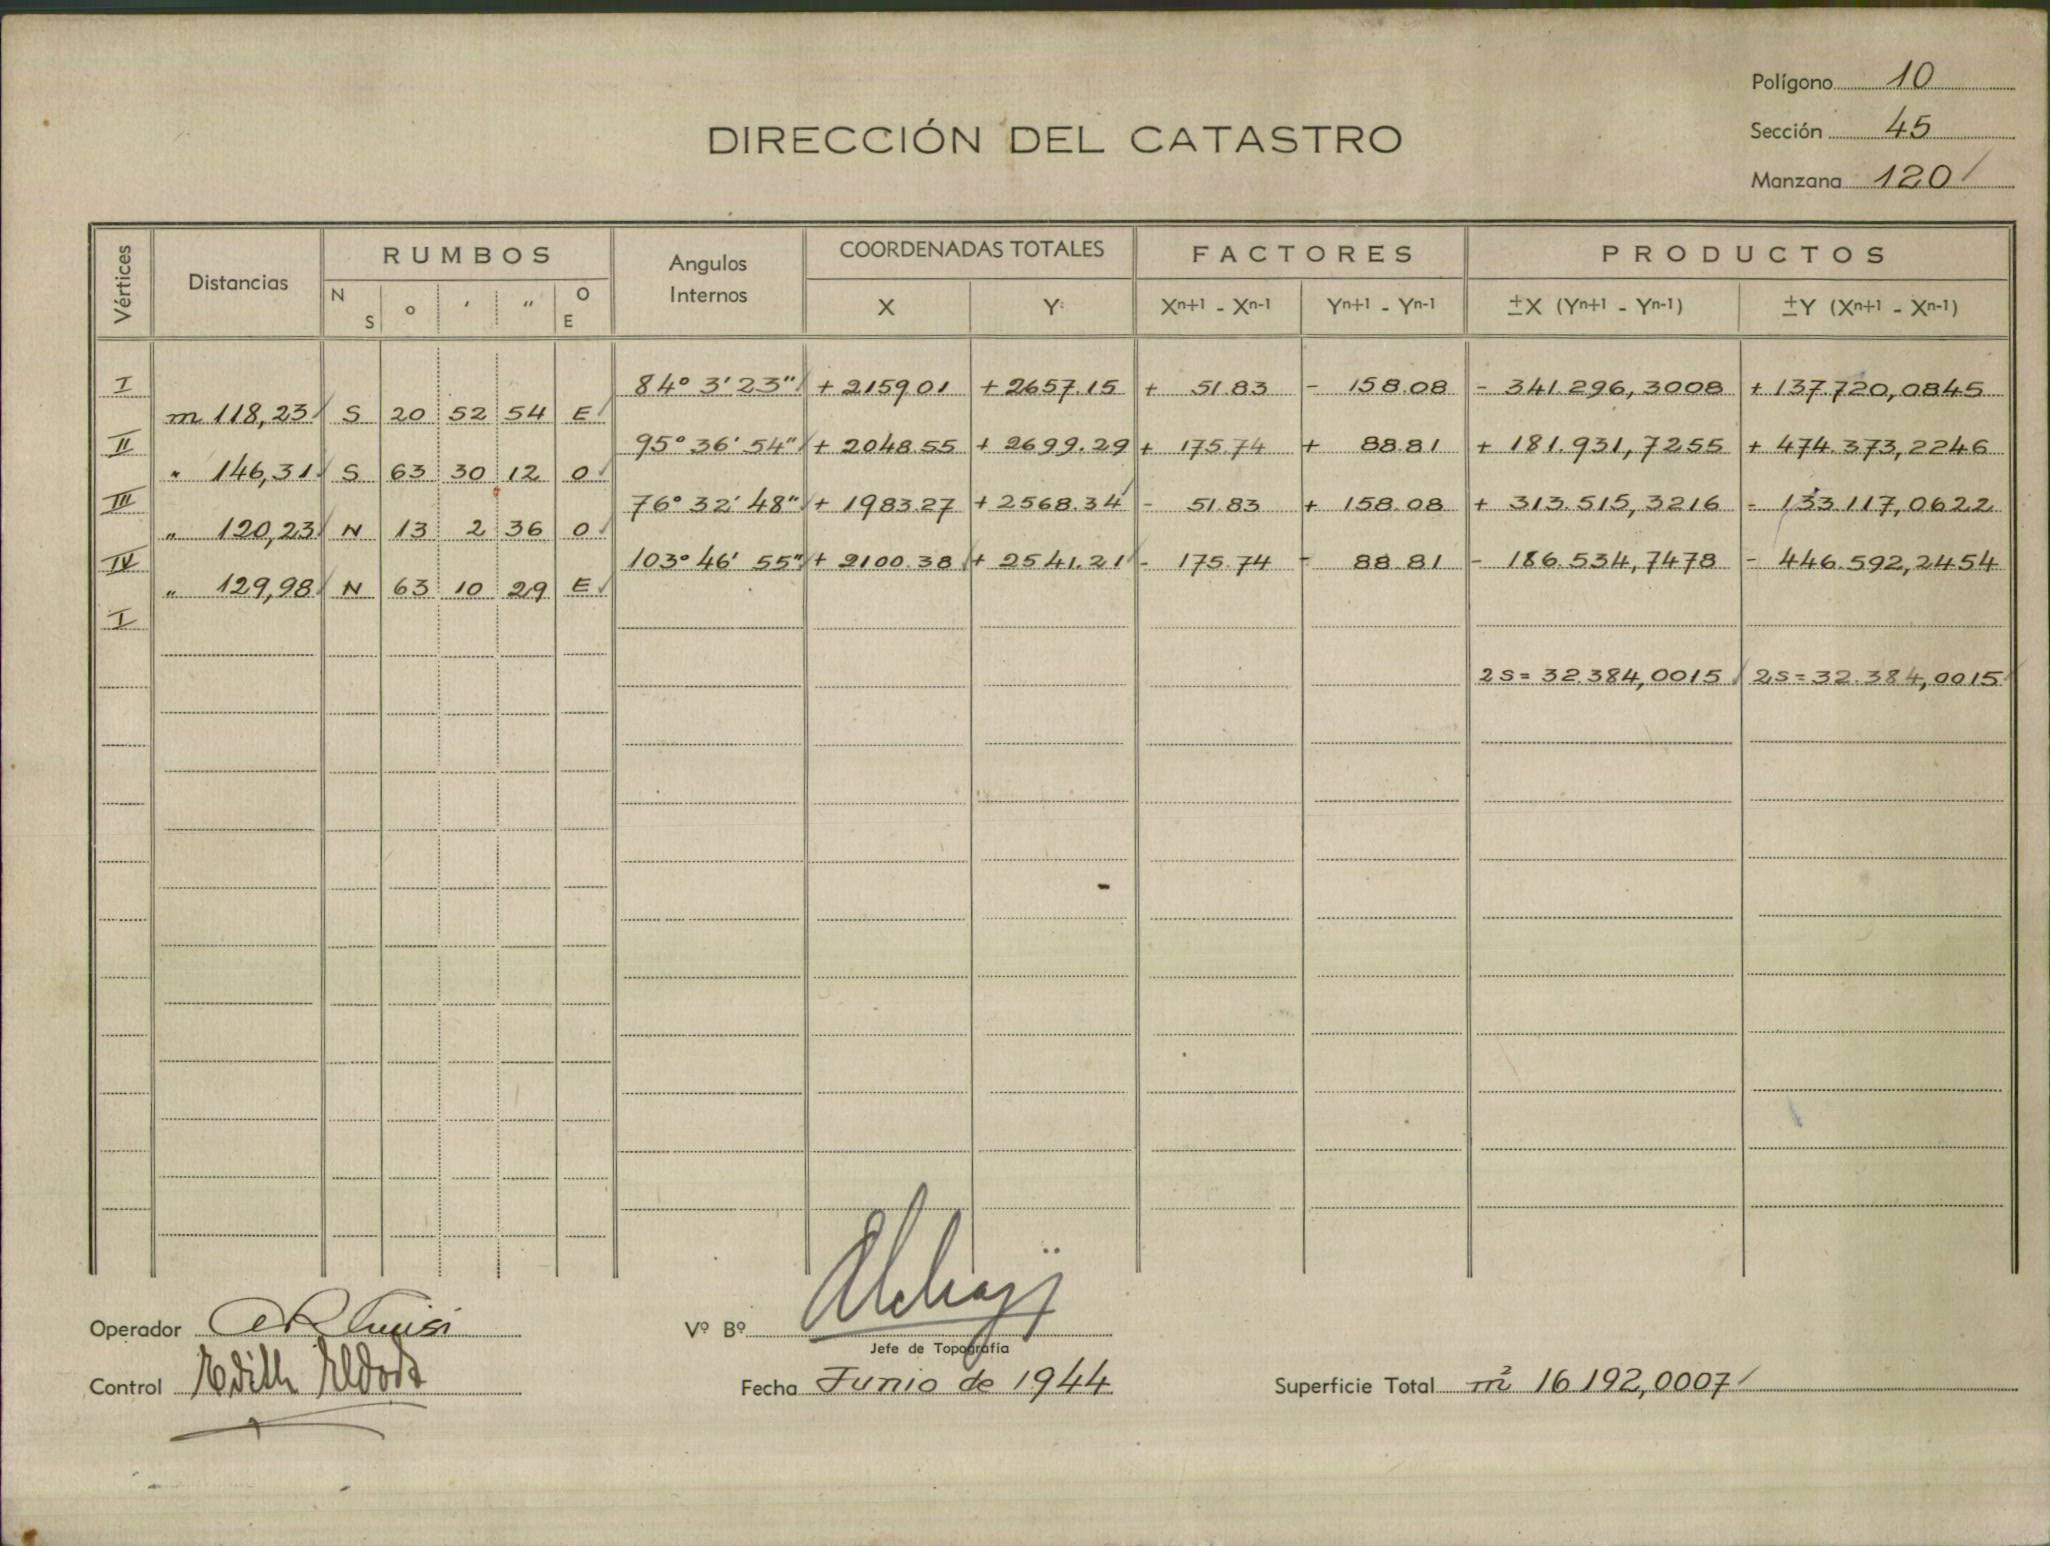 Polígono 10
DIRECCIÓN DEL CATASTRO
Sección 45
Manzana 120
Vértices Distancias RUMBOS Angulos Internos COORDENADAS TOTALES FACTORES PRODUCTOS
N S ° ' " O E X Y Xn+1 - Xn-1 Yn+1 - Yn-1 ±X (Yn+1 - Yn-1) ±Y (Xn+1 - Xn-1)
I 84° 3' 23" + 2159.01 + 2657.15 + 51.83 - 158.08 - 341.296,3008 + 137.720,0845
m 118,23 S 20 52 54 E
II 95° 36' 54" + 2048.55 + 2699.29 + 175.74 + 88.81 + 181.931,7255 + 474.373,2246
" 146,31 S 63 30 12 O
III 76° 32' 48" + 1983.27 + 2568.34 - 51.83 + 158.08 + 313.515,3216 - 133.117,0622
" 120,23 N 13 2 36 O
IV 103° 46' 55" + 2100.38 + 2541.21 - 175.74 - 88.81 - 186.534,7478 - 446.592,2454
" 129,98 N 63 10 29 E
I
2S = 32.384,0015 2S = 32.384,0015
Operador
Vº Bº
Jefe de Topografía
Control Edith
Fecha Junio de 1944
Superficie Total m² 16192,0007